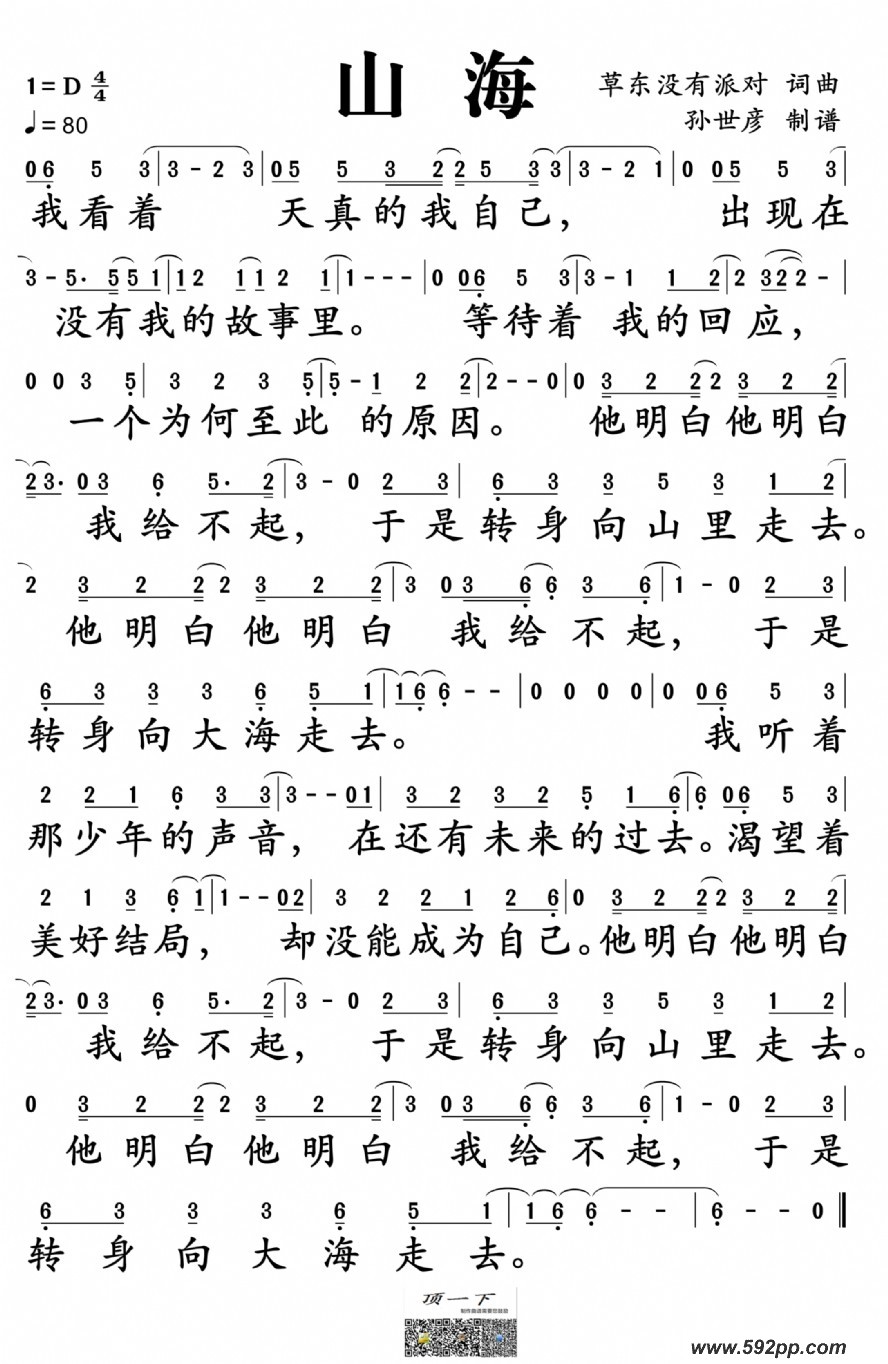 山 海
1= D 4/4
草东没有派对 词曲
♩= 80
孙世彦 制谱
06 5 3|3 - 2 3|05 5 3 2 2 2 5 3 3|3 - 2 1|0 05 5 3|
我看着 天真的我自己， 出现在
3 - 5· 5 5 1|1 2 1 1 2 1|1 - - -|0 06 5 3|3 - 1 1 2|2 3 2 2 -|
没有我的故事里。 等待着 我的回应，
0 0 3 5|3 2 3 5|5 - 1 2 2|2 - - 0|0 3 2 2 2 3 2 2|
一个为何至此 的原因。 他明白他明白
2 3· 0 3 6 5· 2|3 - 0 2 3|6 3 3 5 3 1 2|
我给不起， 于是转身向山里走去。
2 3 2 2 2 3 2 2|3 0 3 6 6 3 6|1 - 0 2 3|
他明白他明白 我给不起， 于是
6 3 3 3 6 5 1|1 6 6 - -|0 0 0 0|0 06 5 3|
转身向大海走去。 我听着
2 2 1 6 3 3|3 - - 01|3 2 3 2 5 1 6|6 06 5 3|
那少年的声音， 在还有未来的过去。渴望着
2 1 3 6 1|1 - - 02|3 2 2 1 2 6|0 3 2 2 2 3 2 2|
美好结局， 却没能成为自己。他明白他明白
2 3· 0 3 6 5· 2|3 - 0 2 3|6 3 3 5 3 1 2|
我给不起， 于是转身向山里走去。
0 3 2 2 2 3 2 2|3 0 3 6 6 3 6|1 - 0 2 3|
他明白他明白 我给不起， 于是
6 3 3 3 6 5 1|1 6 6 - -|6 - - 0‖
转身向大海走去。
顶一下
www.592pp.com